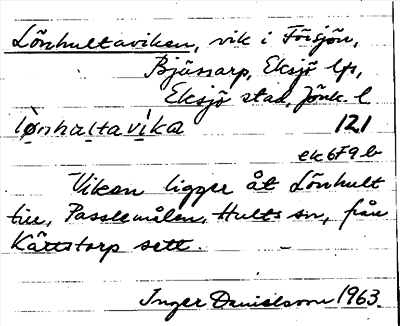 Lönhultaviken, vik i Försjön,
Bjässarp, Eksjö lfs,
Eksjö stad, Jönk. l
lǿnhultavìka 121
ek 6F9 b
Viken ligger åt Lönhult
till, Passlemålen, Hults sn, från
Kättstorp sett.
Inger Danielsson 1963.